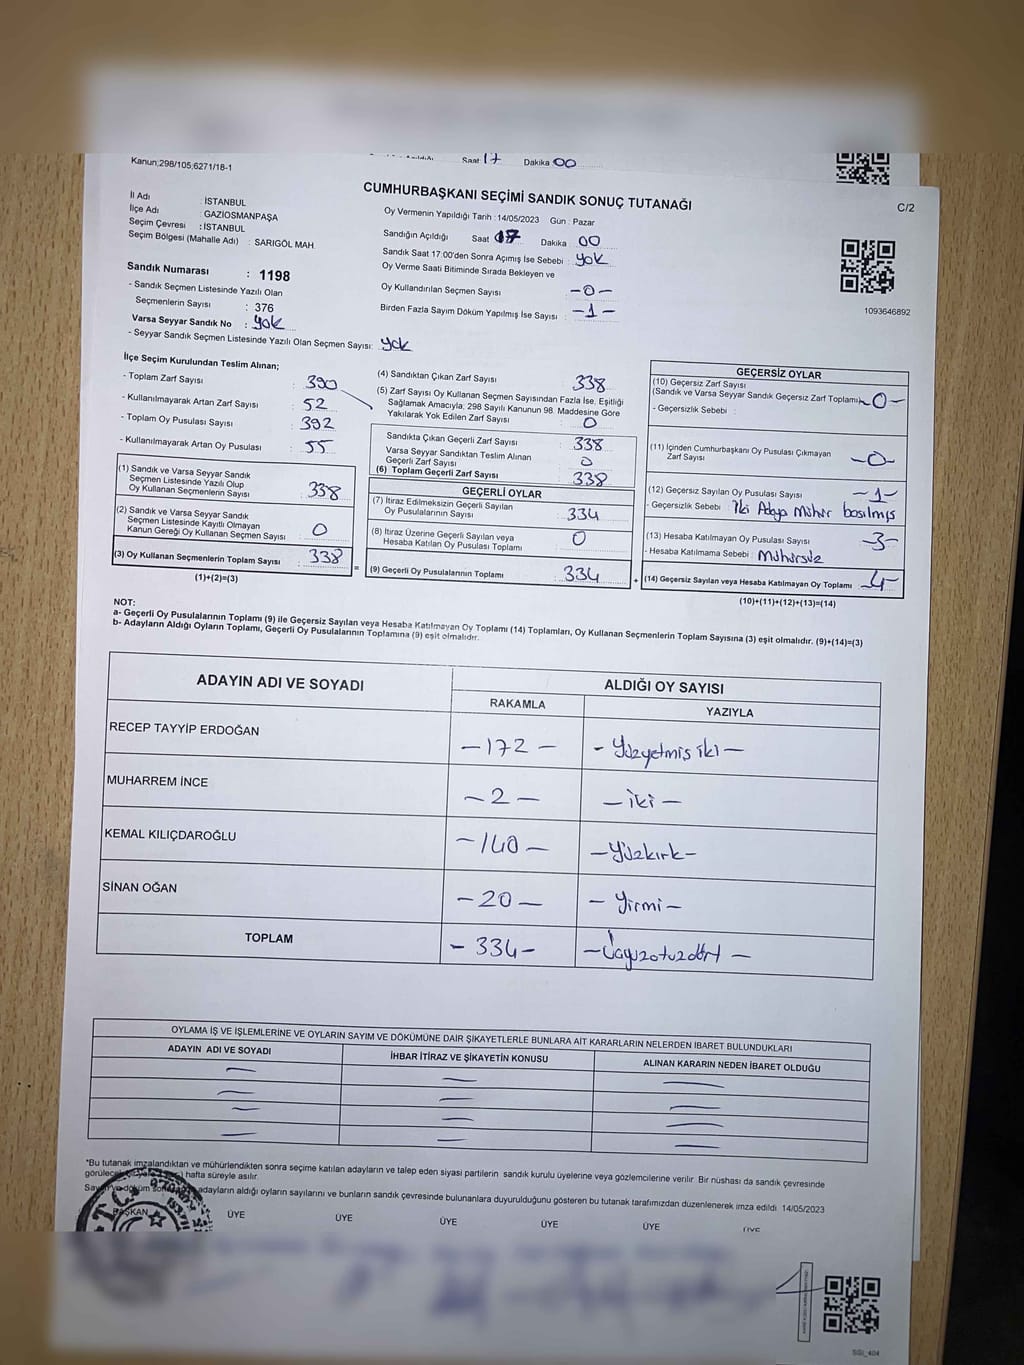 Kanun;298/105;6271/18-1
Saat 17 Dakika 00
CUMHURBAŞKANI SEÇİMİ SANDIK SONUÇ TUTANAĞI
C/2
İl Adı : İSTANBUL
İlçe Adı : GAZİOSMANPAŞA
Seçim Çevresi : İSTANBUL
Seçim Bölgesi (Mahalle Adı) : SARIGÖL MAH.
Oy Vermenin Yapıldığı Tarih : 14/05/2023 Gün : Pazar
Sandığın Açıldığı Saat 17 Dakika 00
Sandık Saat 17.00'den Sonra Açımış İse Sebebi : yok
Oy Verme Saati Bitiminde Sırada Bekleyen ve
Oy Kullandırılan Seçmen Sayısı -0-
Birden Fazla Sayım Döküm Yapılmış İse Sayısı : -1-
1093646892
Sandık Numarası : 1198
- Sandık Seçmen Listesinde Yazılı Olan
Seçmenlerin Sayısı : 376
Varsa Seyyar Sandık No : yok
- Seyyar Sandık Seçmen Listesinde Yazılı Olan Seçmen Sayısı: yok
İlçe Seçim Kurulundan Teslim Alınan;
- Toplam Zarf Sayısı : 390
- Kullanılmayarak Artan Zarf Sayısı : 52
- Toplam Oy Pusulası Sayısı : 392
- Kullanılmayarak Artan Oy Pusulası : 55
(1) Sandık ve Varsa Seyyar Sandık
Seçmen Listesinde Yazılı Olup
Oy Kullanan Seçmenlerin Sayısı : 338
(2) Sandık ve Varsa Seyyar Sandık
Seçmen Listesinde Kayıtlı Olmayan
Kanun Gereği Oy Kullanan Seçmen Sayısı : 0
(3) Oy Kullanan Seçmenlerin Toplam Sayısı : 338
(1)+(2)=(3)
(4) Sandıktan Çıkan Zarf Sayısı : 338
(5) Zarf Sayısı Oy Kullanan Seçmen Sayısından Fazla İse, Eşitliği
Sağlamak Amacıyla; 298 Sayılı Kanunun 98. Maddesine Göre
Yakılarak Yok Edilen Zarf Sayısı : 0
Sandıkta Çıkan Geçerli Zarf Sayısı : 338
Varsa Seyyar Sandıktan Teslim Alınan
Geçerli Zarf Sayısı : 0
(6) Toplam Geçerli Zarf Sayısı : 338
GEÇERLİ OYLAR
(7) İtiraz Edilmeksizin Geçerli Sayılan
Oy Pusulalarının Sayısı : 334
(8) İtiraz Üzerine Geçerli Sayılan veya
Hesaba Katılan Oy Pusulası Toplamı : 0
(9) Geçerli Oy Pusulalarının Toplamı : 334
GEÇERSİZ OYLAR
(10) Geçersiz Zarf Sayısı
(Sandık ve Varsa Seyyar Sandık Geçersiz Zarf Toplamı) -0-
- Geçersizlik Sebebi :
(11) İçinden Cumhurbaşkanı Oy Pusulası Çıkmayan
Zarf Sayısı -0-
(12) Geçersiz Sayılan Oy Pusulası Sayısı -1-
- Geçersizlik Sebebi : İki Adaya Mühür basılmış
(13) Hesaba Katılmayan Oy Pusulası Sayısı -3-
- Hesaba Katılmama Sebebi : Mühürsüz
(14) Geçersiz Sayılan veya Hesaba Katılmayan Oy Toplamı : -4-
(10)+(11)+(12)+(13)=(14)
NOT:
a- Geçerli Oy Pusulalarının Toplamı (9) ile Geçersiz Sayılan veya Hesaba Katılmayan Oy Toplamı (14) Toplamları, Oy Kullanan Seçmenlerin Toplam Sayısına (3) eşit olmalıdır. (9)+(14)=(3)
b- Adayların Aldığı Oyların Toplamı, Geçerli Oy Pusulalarının Toplamına (9) eşit olmalıdır.
ADAYIN ADI VE SOYADI
ALDIĞI OY SAYISI
RAKAMLA YAZIYLA
RECEP TAYYİP ERDOĞAN -172- -Yüzyetmiş iki-
MUHARREM İNCE -2- -iki-
KEMAL KILIÇDAROĞLU -140- -Yüzkırk-
SİNAN OĞAN -20- -Yirmi-
TOPLAM -334- -Üçyüzotuzdört-
OYLAMA İŞ VE İŞLEMLERİNE VE OYLARIN SAYIM VE DÖKÜMÜNE DAİR ŞİKAYETLERLE BUNLARA AİT KARARLARIN NELERDEN İBARET BULUNDUKLARI
ADAYIN ADI VE SOYADI İHBAR İTİRAZ VE ŞİKAYETİN KONUSU ALINAN KARARIN NEDEN İBARET OLDUĞU
*Bu tutanak imzalandıktan ve mühürlendikten sonra seçime katılan adayların ve talep eden siyasi partilerin sandık kurulu üyelerine veya gözlemcilerine verilir. Bir nüshası da sandık çevresinde
hafta süreyle asılır.
adayların aldığı oyların sayılarını ve bunların sandık çevresinde bulunanlara duyurulduğunu gösteren bu tutanak tarafımızdan düzenlenerek imza edildi 14/05/2023
BAŞKAN ÜYE ÜYE ÜYE ÜYE ÜYE ÜYE
T.C.
SGI_404